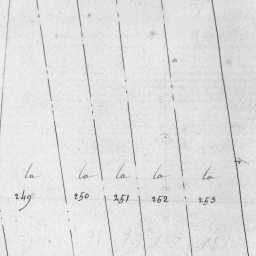 la la la la la
249 250 251 252 253